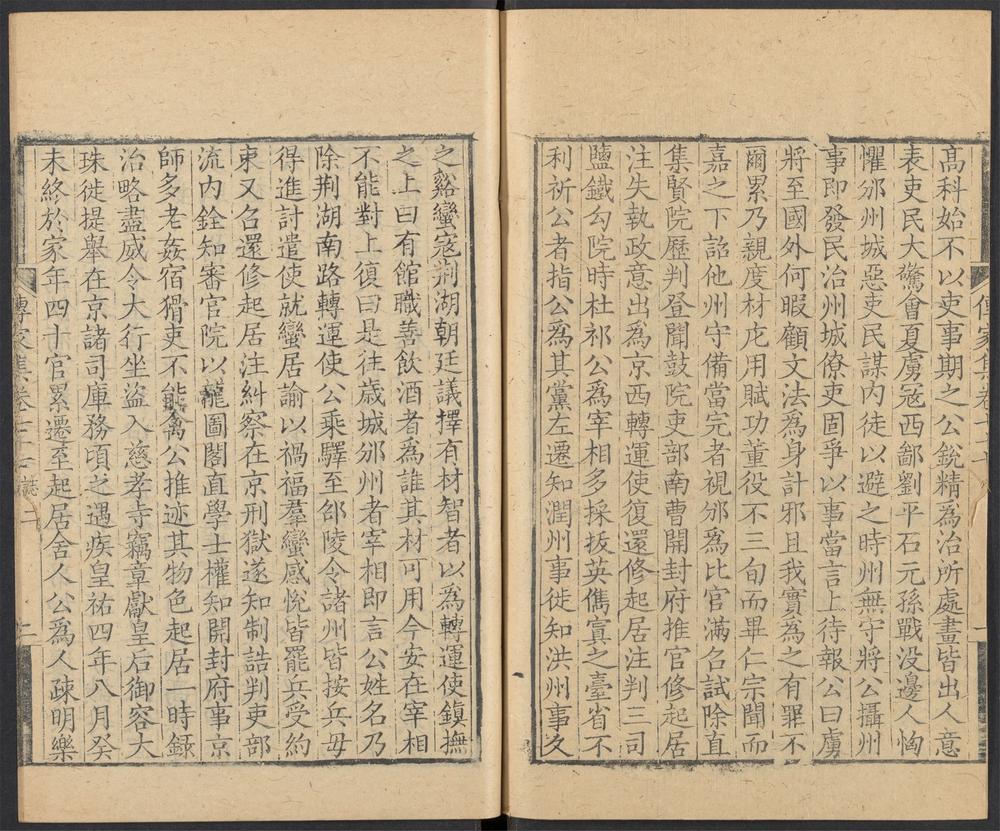 高科始不以吏事期之公銳精為治所處畫皆出人意
表吏民大驚會夏虜冦西鄙劉平石元孫戰没邊人恟
懼邠州城惡吏民謀内徙以避之時州無守將公攝州
事即發民治州城僚吏固爭以事當言上待報公曰虜
將至國外何暇顧文法為身計邪且我實為之有罪不
爾累乃親度材庀用賦功董役不三旬而畢仁宗聞而
嘉之下詔他州守備當完者視邠為比官滿名試除直
集賢院歷判登聞鼓院吏部南曹開封府推官修起居
注失執政意出為京西轉運使復還修起居注判三司
鹽鐵勾院時杜祁公為宰相多採拔英儁寘之臺省不
利祈公者指公為其黨左遷知潤州事徙知洪州事久
傳家集卷七十
一
之谿蠻寇荆湖朝廷議擇有材智者以為轉運使鎭撫
之上曰有館職善飲酒者為誰其材可用今安在宰相
不能對上復曰是往歳城邠州者宰相即言公姓名乃
除荆湖南路轉運使公乘驛至邵陵令諸州皆按兵毋
得進討遣使就蠻居諭以禍福羣蠻感恱皆罷兵受約
束又名還修起居注糾察在京刑獄遂知制誥判吏部
流内銓知審官院以龍圖閣直學士權知開封府事京
師多老姦宿猾吏不能禽公推迹其物色起居一時鎵
治略盡威令大行坐盜入慈孝寺竊章獻皇后御容大
珠徙提舉在京諸司庫務頃之遇疾皇祐四年八月癸
未終於家年四十官累遷至起居舎人公為人踈明樂
傳家集卷七十 誌
二